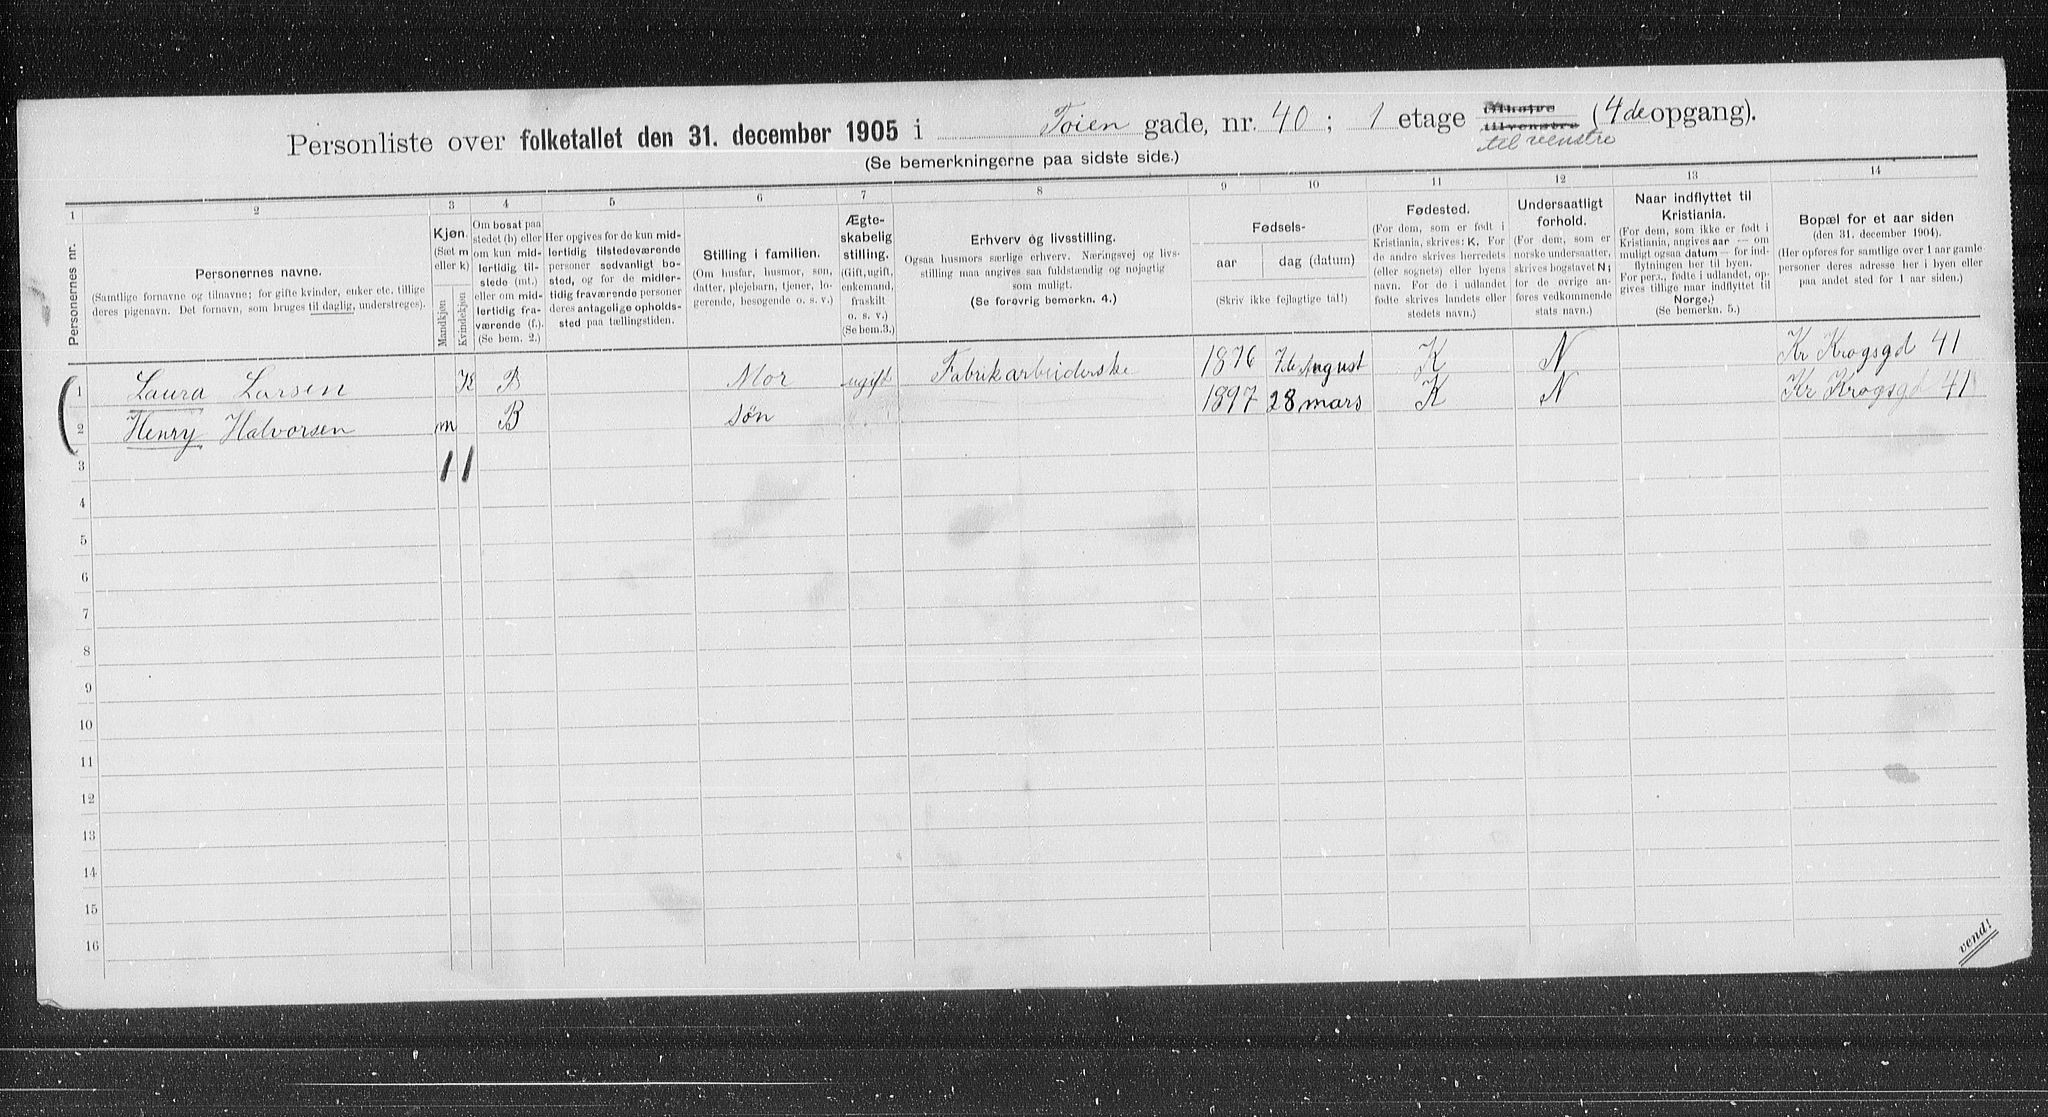 Personliste over folketallet den 31. december 1905 i Toien gade, nr. 40 ; 1 etage tilhøire tilvenstre (4de opgang).
til venstre
(Se bemerkningerne paa sidste side.)
1 2 3 4 5 6 7 8 9 10 11 12 13 14
Personernes nr.
Personernes navne.
(Samtlige fornavne og tilnavne; for gifte kvinder, enker etc. tillige
deres pigenavn. Det fornavn, som bruges til daglig, understreges).
Kjøn.
(Sæt m
eller k)
Mandkjøn
Kvindekjøn
Om bosat paa
stedet (b) eller
om kun mid-
lertidig til-
stede (mt.)
eller om mid-
lertidig fra-
værende (f.).
(Se bem. 2.)
Her opgives for de kun mid-
lertidig tilstedeværende
personer sedvanligt bo-
sted, og for de midler-
tidig fraværende personer
deres antagelige opholds-
sted paa tællingstiden.
Stilling i familien.
(Om husfar, husmor, søn,
datter, plejebarn, tjener, lo-
gerende, besøgende o. s. v.)
Ægte-
skabelig
stilling.
(Gift, ugift,
enkemand,
fraskilt
o. s. v.)
(Se bem.3.)
Erhverv og livsstilling.
Ogsaa husmors særlige erhverv. Næringsvej og livs-
stilling maa angives saa fuldstændig og nøjagtig
som muligt.
(Se forøvrig bemerkn. 4.)
Fødsels-
aar dag (datum)
(Skriv ikke fejlagtige tal!)
Fødested.
(For dem, som er født i
Kristiania, skrives: K. For
de andre skrives herredets
(eller sognets) eller byens
navn. For de i udlandet
fødte skrives landets eller
stedets navn.)
Undersaatligt
forhold.
(For dem, som er
norske undersaatter,
skrives bogstavet N;
for de øvrige an-
føres vedkommende
stats navn.)
Naar indflyttet til
Kristiania.
(For dem, som ikke er født i
Kristiania, angives aar — om
muligt ogsaa datum — for ind-
flytningen her til byen.
For pers., fødte i udlandet, op-
gives tillige naar indflyttet til
Norge.)
(Se bemerkn. 5.)
Bopæl for et aar siden
(den 31. december 1904).
(Her opføres for samtlige over 1 aar gamle
personer deres adresse her i byen eller
paa andet sted for 1 aar siden.)
1 Laura Larsen K B Mor ugift Fabrikarbeiderske 1876 7de August K N Kr Krogsgd 41
2 Henry Halvorsen m B søn 1897 28 mars K N Kr Krogsgd 41
3 1 1
4
5
6
7
8
9
10
11
12
13
14
15
16
vend!